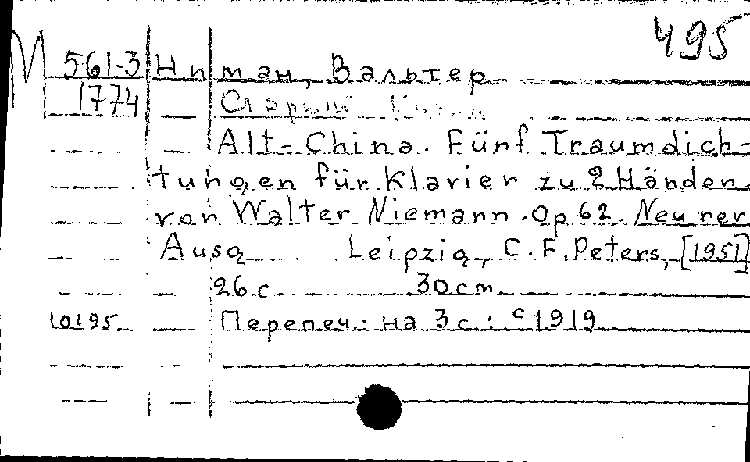 495
М 561-3 Ниман, Вальтер
1774 Старый Китай
Alt-China. Fünf Traumdich-
tungen für Klavier zu 2 Händen
von Walter Niemann. Op 62. Neu rev
Ausg Leipzig, C. F. Peters, [1951]
26 с 30 cm
10195 Перепеч: на 3 с: с 1919